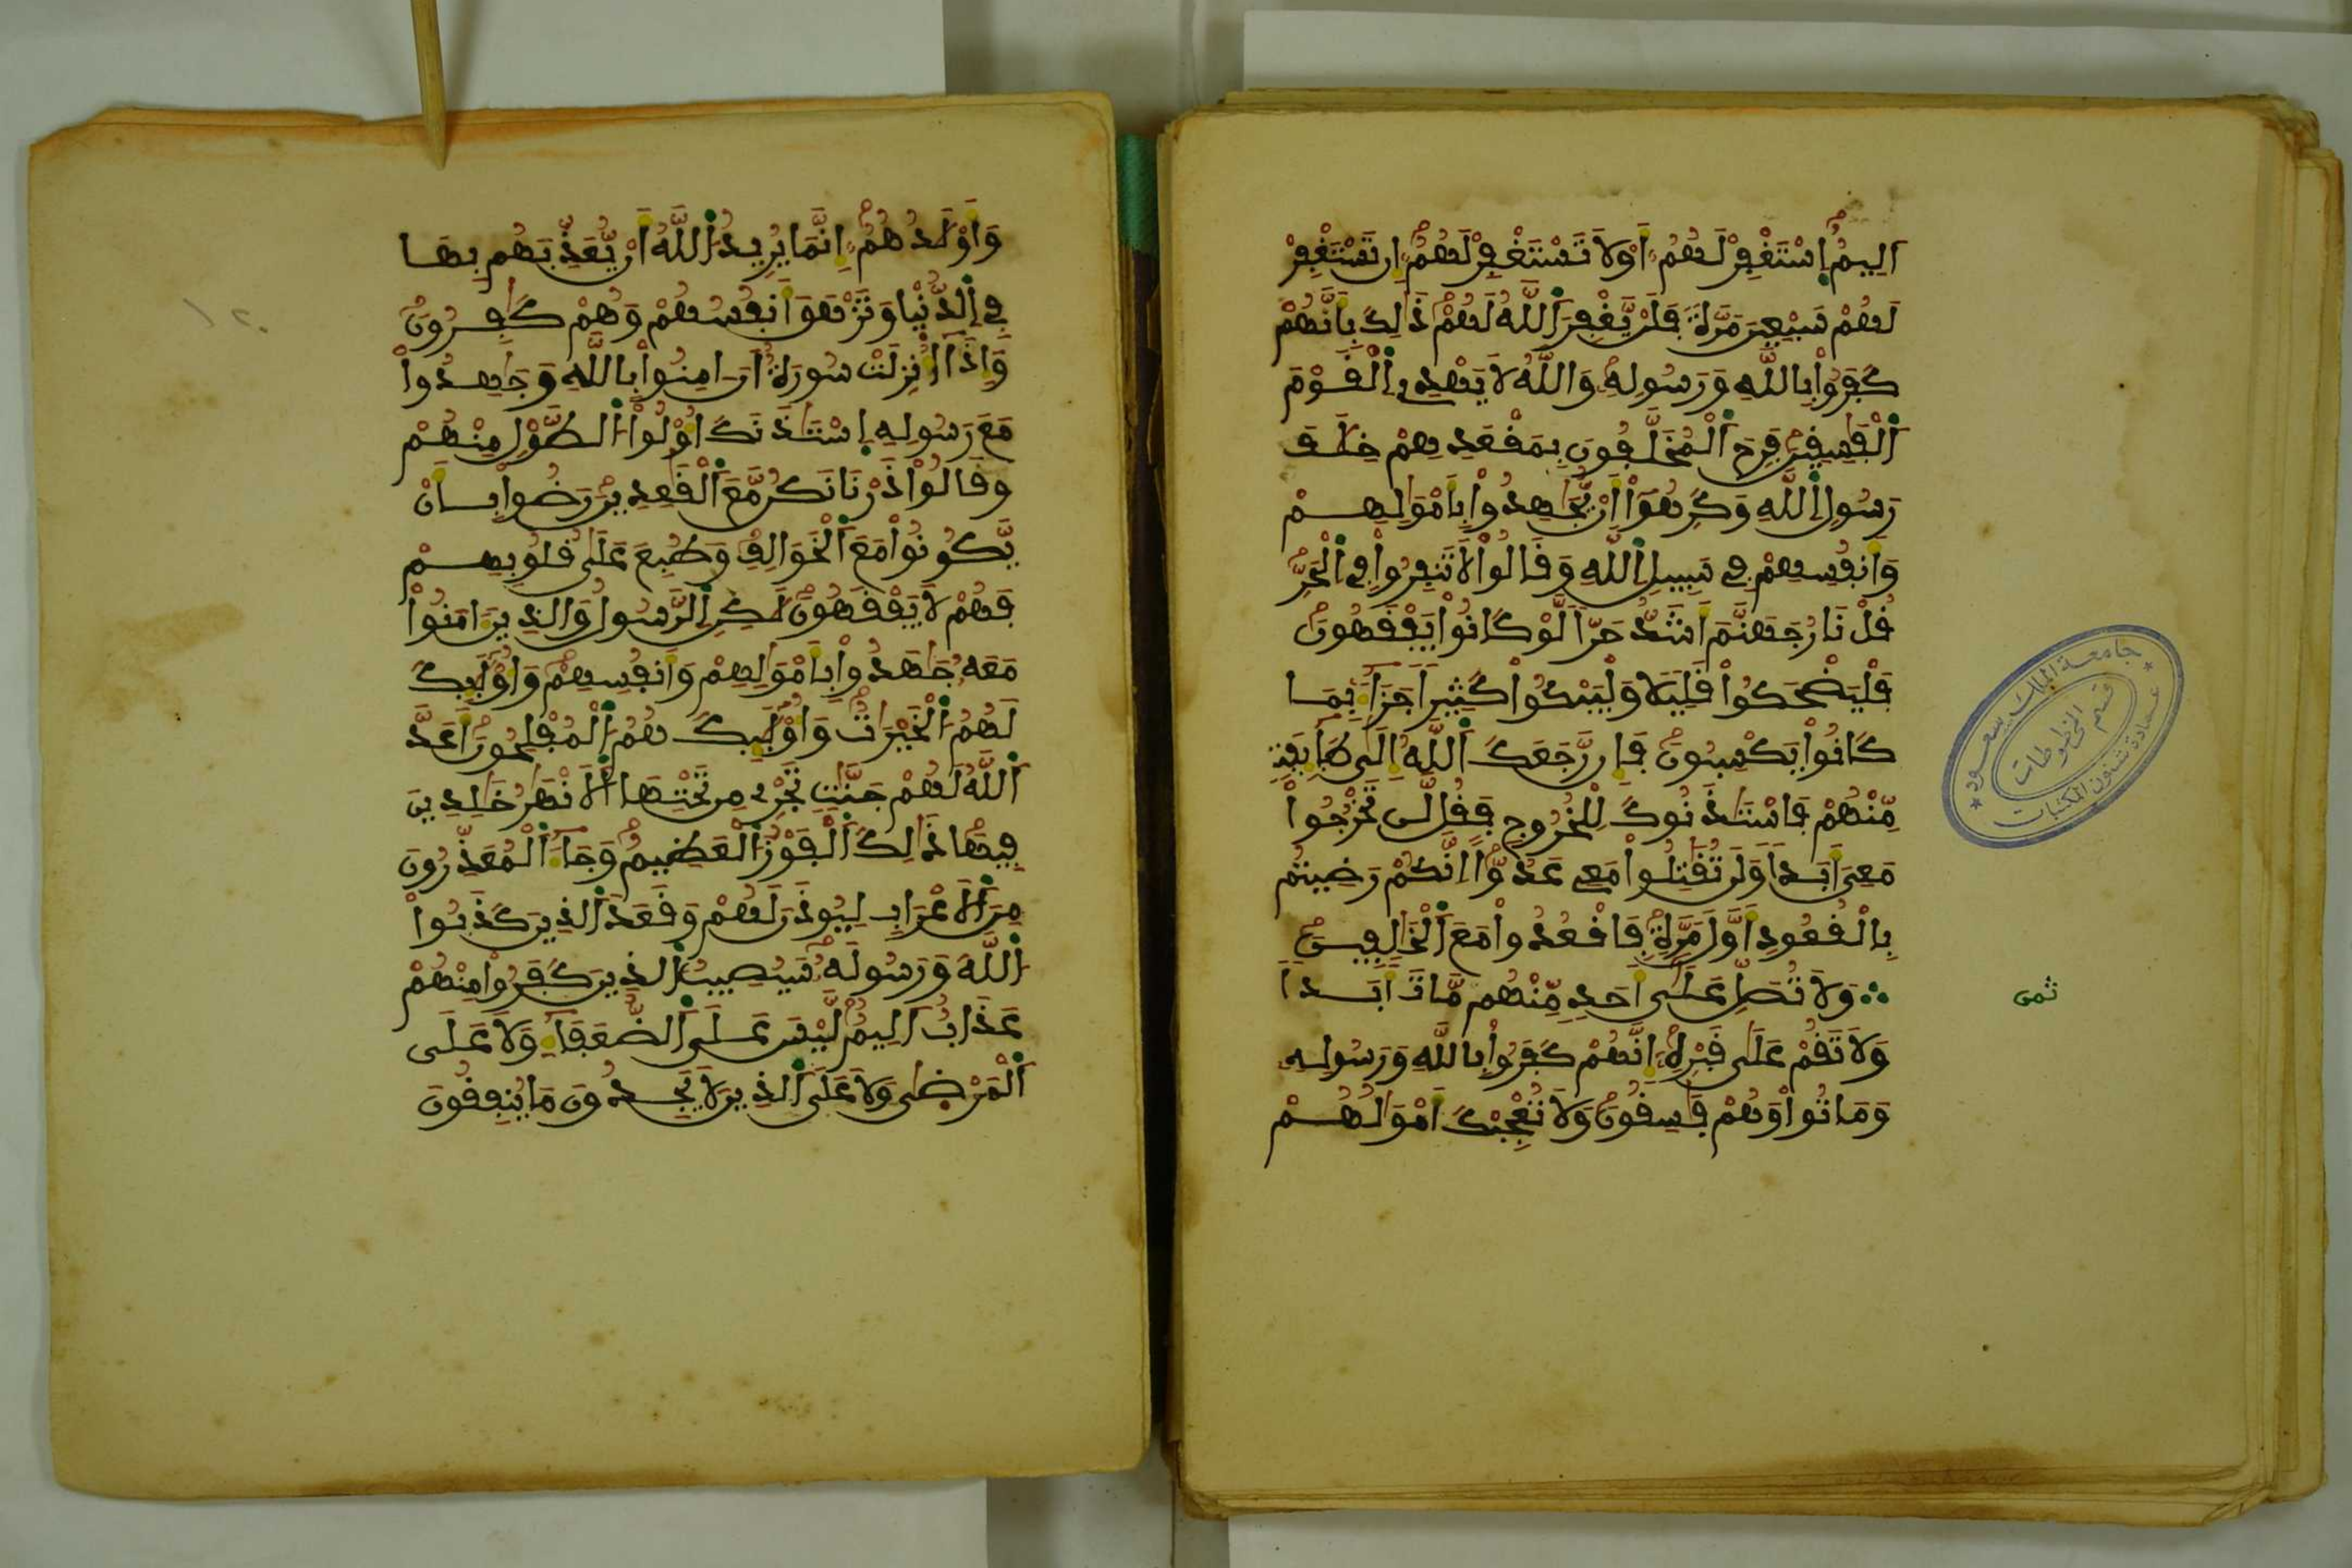 اَلِيمٌ اِسْتَغْفِرْ لَهُمُۥٓ أَوْ لَا تَسْتَغْفِرْ لَهُمُۥٓ إِن تَسْتَغْفِرْ
لَهُمْ سَبْعِينَ مَرَّةً فَلَنْ يَّغْفِرَ اَللَّهُ لَهُمْ ذَٰلِكَ بِأَنَّهُمْ
كَفَرُواْ بِاللَّهِ وَرَسُولِهِۦ وَاللَّهُ لَا يَهْدِے اِلْقَوْمَ
اَلْفَٰسِقِينَ فَرِحَ اَلْمُخَلَّفُونَ بِمَقْعَدِهِمْ خِلَٰفَ
رَسُولِ اِللَّهِ وَكَرِهُوٓاْ أَنْ يُّجَٰهِدُواْ بِأَمْوَٰلِهِمْ
وَأَنفُسِهِمْ فِے سَبِيلِ اِللَّهِ وَقَالُواْ لَا تَنفِرُواْ فِے اِلْحَرِّ
قُلْ نَارُ جَهَنَّمَ أَشَدُّ حَرّاً لَّوْ كَانُواْ يَفْقَهُونَ
فَلْيَضْحَكُواْ قَلِيلاً وَلْيَبْكُواْ كَثِيراً جَزَآءَۢ بِمَا
كَانُواْ يَكْسِبُونَ فَإِن رَّجَعَكَ اَللَّهُ إِلَىٰ طَآئِفَةٍ
مِّنْهُمْ فَاسْتَـٔذَنُوكَ لِلْخُرُوجِ فَقُل لَّن تَخْرُجُواْ
مَعِىَ أَبَداً وَلَن تُقَٰتِلُواْ مَعِے عَدُوّاً اِنَّكُمْ رَضِيتُم
بِالْقُعُودِ أَوَّلَ مَرَّةٍ فَاقْعُدُواْ مَعَ اَلْخَٰلِفِينَ
وَلَا تُصَلِّ عَلَىٰٓ أَحَدٍ مِّنْهُم مَّاتَ أَبَداً
ثمن
وَلَا تَقُمْ عَلَىٰ قَبْرِهِۦٓ إِنَّهُمْ كَفَرُواْ بِاللَّهِ وَرَسُولِهِۦ
وَمَاتُواْ وَهُمْ فَٰسِقُونَ وَلَا تُعْجِبْكَ أَمْوَٰلُهُمْ
جامعة الملك سعود
قسم المخطوطات
عمادة شئون المكتبات
وَأَوْلَٰدُهُمُۥٓ إِنَّمَا يُرِيدُ اُللَّهُ أَنْ يُّعَذِّبَهُم بِهَا
فِے اِلدُّنْيَا وَتَزْهَقَ أَنفُسُهُمْ وَهُمْ كَٰفِرُونَ
وَإِذَآ أُنزِلَتْ سُورَةٌ أَنَ اٰمِنُواْ بِاللَّهِ وَجَٰهِدُواْ
مَعَ رَسُولِهِ اِسْتَـٔذَنَكَ أُوْلُواْ اُلطَّوْلِ مِنْهُمْ
وَقَالُواْ ذَرْنَا نَكُن مَّعَ اَلْقَٰعِدِينَ رَضُواْ بِأَنْ
يَّكُونُواْ مَعَ اَلْخَوَالِفِ وَطُبِعَ عَلَىٰ قُلُوبِهِمْ
فَهُمْ لَا يَفْقَهُونَ لَٰكِنِ اِلرَّسُولُ وَالذِينَ ءَامَنُواْ
مَعَهُۥ جَٰهَدُواْ بِأَمْوَٰلِهِمْ وَأَنفُسِهِمْ وَأُوْلَٰٓئِكَ
لَهُمُ اُلْخَيْرَٰتُ وَأُوْلَٰٓئِكَ هُمُ اُلْمُفْلِحُونَ أَعَدَّ
اَللَّهُ لَهُمْ جَنَّٰتٍ تَجْرِے مِن تَحْتِهَا اَلْأَنْهَٰرُ خَٰلِدِينَ
فِيهَا ذَٰلِكَ اَلْفَوْزُ اُلْعَظِيمُ وَجَآءَ اَلْمُعَذِّرُونَ
مِنَ اَلْأَعْرَابِ لِيُوذَنَ لَهُمْ وَقَعَدَ اَلذِينَ كَذَبُواْ
اُللَّهَ وَرَسُولَهُۥ سَيُصِيبُ اُلذِينَ كَفَرُواْ مِنْهُمْ
عَذَابٌ اَلِيمٌ لَّيْسَ عَلَى اَلضُّعَفَآءِ وَلَا عَلَى
اَلْمَرْضَىٰ وَلَا عَلَى اَلذِينَ لَا يَجِدُونَ مَا يُنفِقُونَ
١٢٠